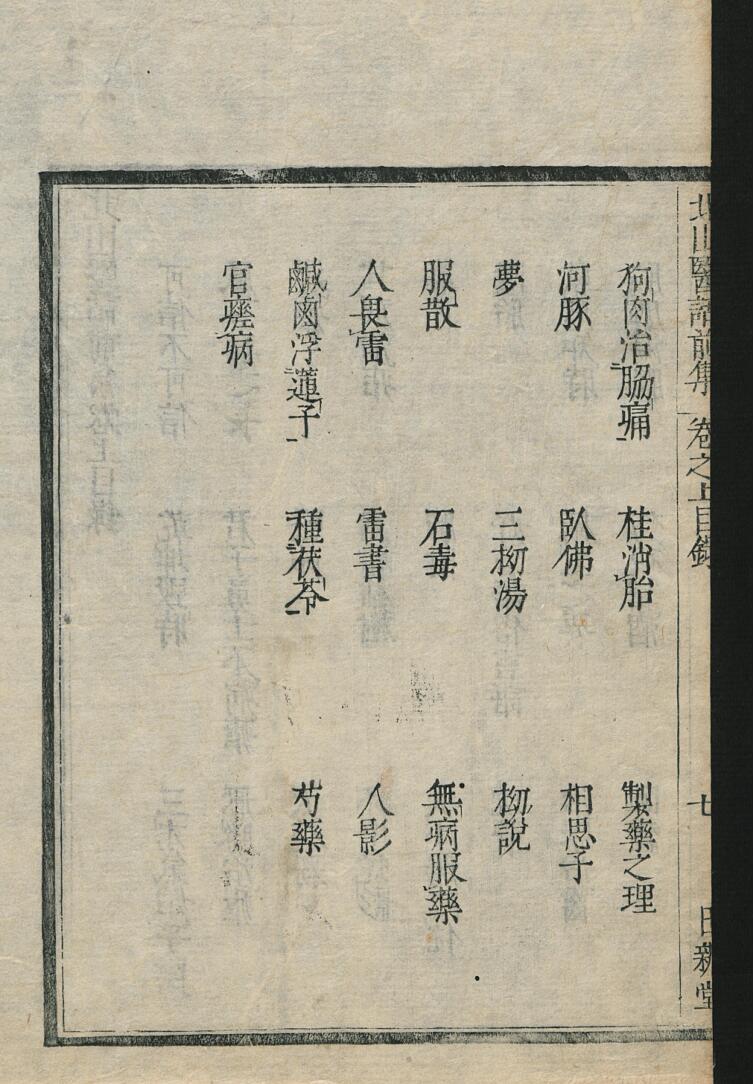 北山醫話前集 卷之上目錄 七 日新堂
狗肉治脇痛 桂消胎 製藥之理
河豚 臥佛 相思子
夢 三抝湯 抝說
服散 石毒 無病服藥
人畏雷 雷書 人影
鹹鹵浮蓮子 種茯苓 芍藥
官 病